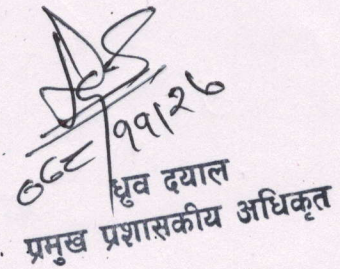 ०६८/११/२७
ध्रुव दयाल
प्रमुख प्रशासकीय अधिकृत